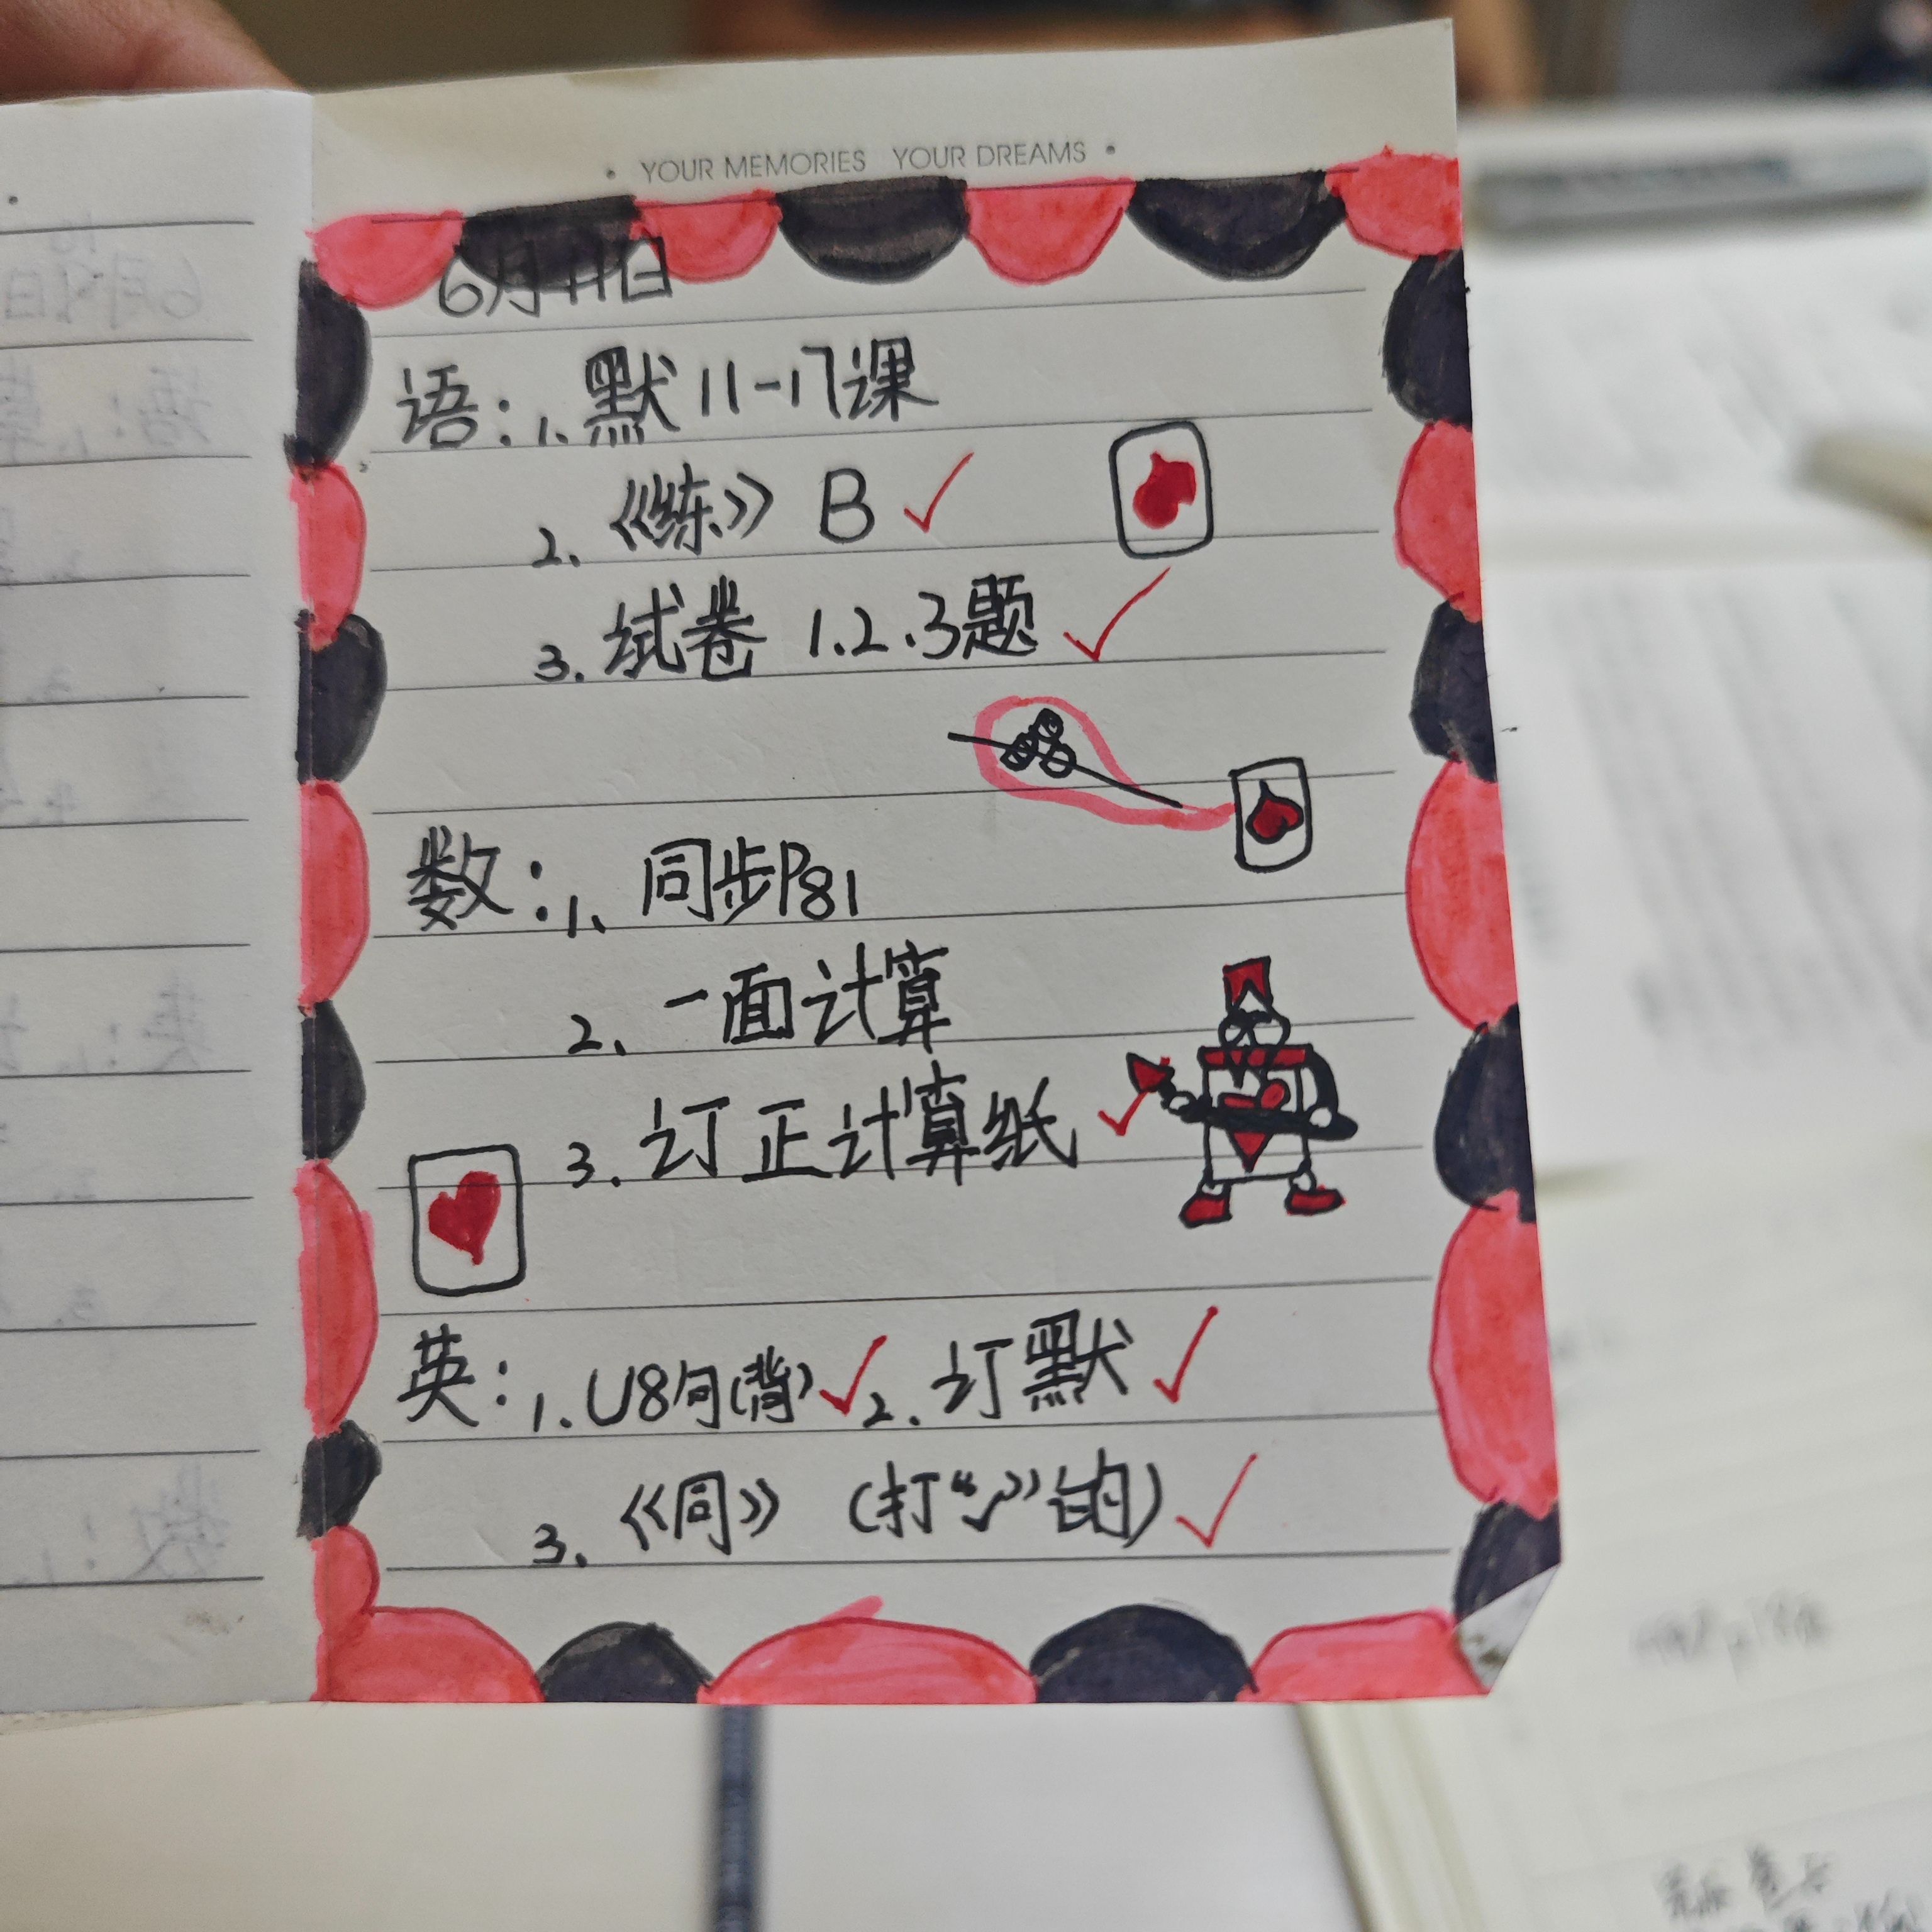 • YOUR MEMORIES YOUR DREAMS •
6月11日
语:1、默11-17课
2、《练》B ✓
3. 试卷 1.2.3题 ✓
数:1、同步P81
2、一面计算
3. 订正计算纸 ✓
英:1. U8句(背) ✓ 2. 订默 ✓
3. 《同》 (打“✓”的) ✓